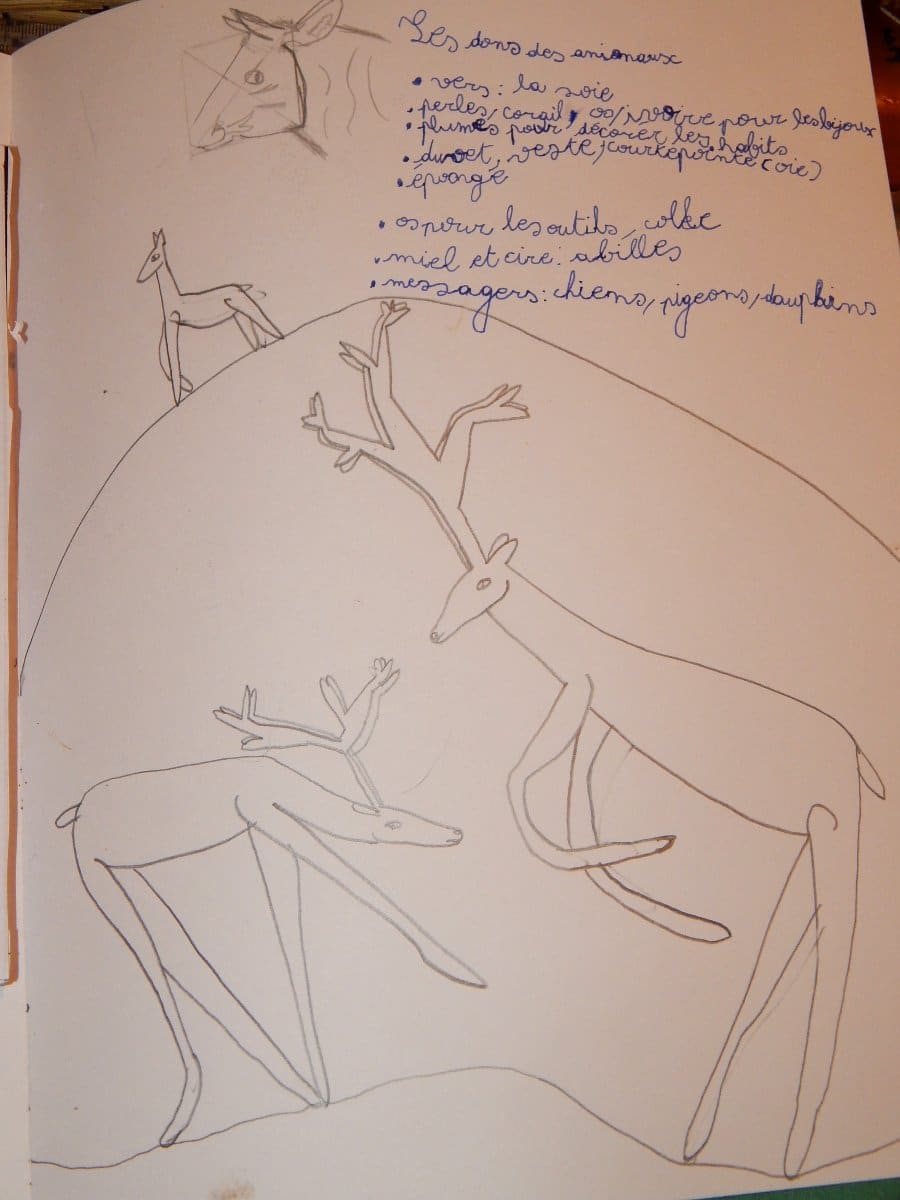 Les dons des anionaux
• vers : la soie
• perles, corail, os, ivoire pour les bijoux
• plumes pour décorer les habits
• duvet, veste, courtepointe (oie)
• éponge
• os pour les outils, colle
• miel et cire : abilles
• messagers : chiens, pigeons, dauphins